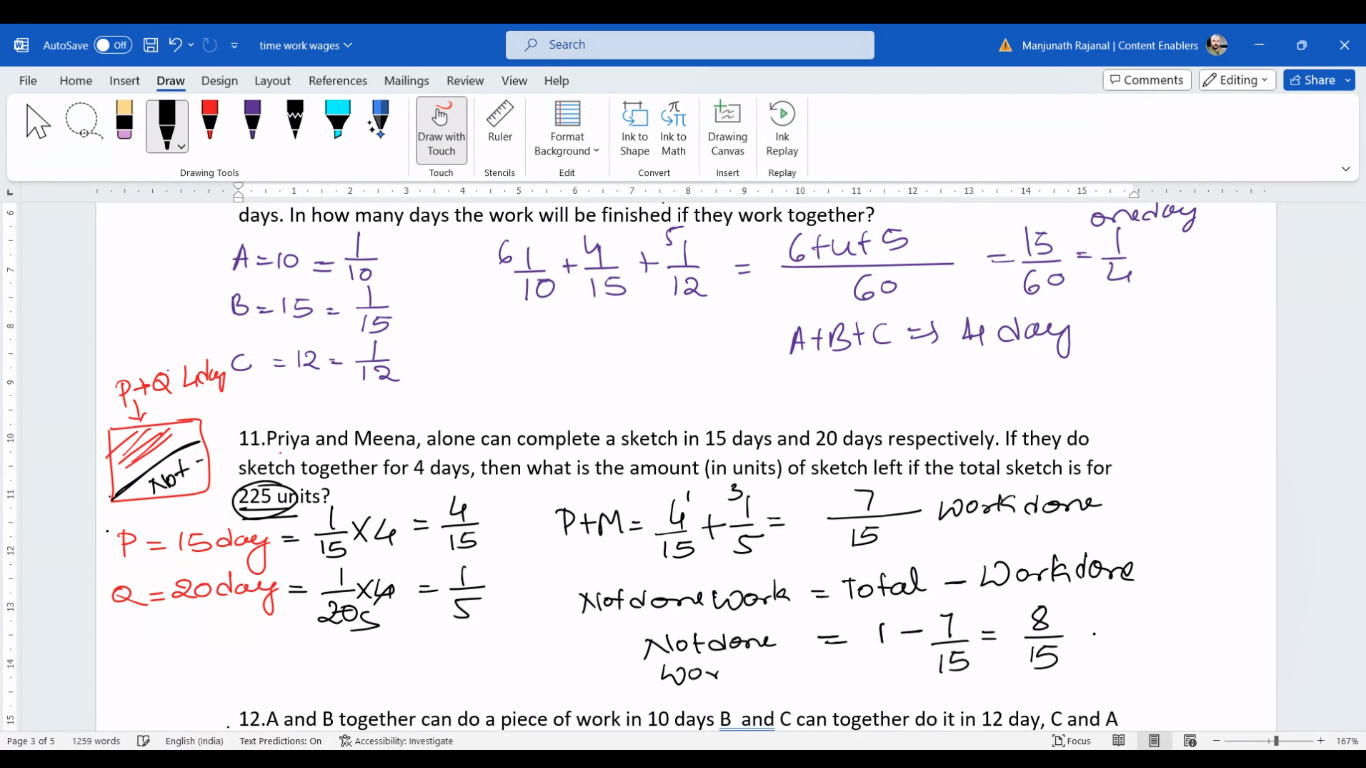 AutoSave Off time work wages Search Manjunath Rajanal | Content Enablers
File Home Insert Draw Design Layout References Mailings Review View Help Comments Editing Share
Draw with Touch Ruler Format Background Ink to Shape Ink to Math Drawing Canvas Ink Replay
Drawing Tools Touch Stencils Edit Convert Insert Replay
1 2 3 4 5 6 7 8 9 10 11 12 13 14 15
days. In how many days the work will be finished if they work together?
one day
A = 10 = 1/10
6 1/10 + 4/15 + 5 1/12 = 6+4+5/60 = 15/60 = 1/4
B = 15 = 1/15
A+B+C => 4 day
C = 12 = 1/12
P+Q 4day
Not
11.Priya and Meena, alone can complete a sketch in 15 days and 20 days respectively. If they do
sketch together for 4 days, then what is the amount (in units) of sketch left if the total sketch is for
225 units?
P = 15 day = 1/15 × 4 = 4/15
P+M = 4 1/15 + 3 1/5 = 7/15 work done
Q = 20 day = 1/20 5 × 4 = 1/5
Not done work = Total - work done
Not done = 1 - 7/15 = 8/15
Wor
12.A and B together can do a piece of work in 10 days B and C can together do it in 12 day, C and A
Page 3 of 5 1259 words English (India) Text Predictions: On Accessibility: Investigate Focus 167%